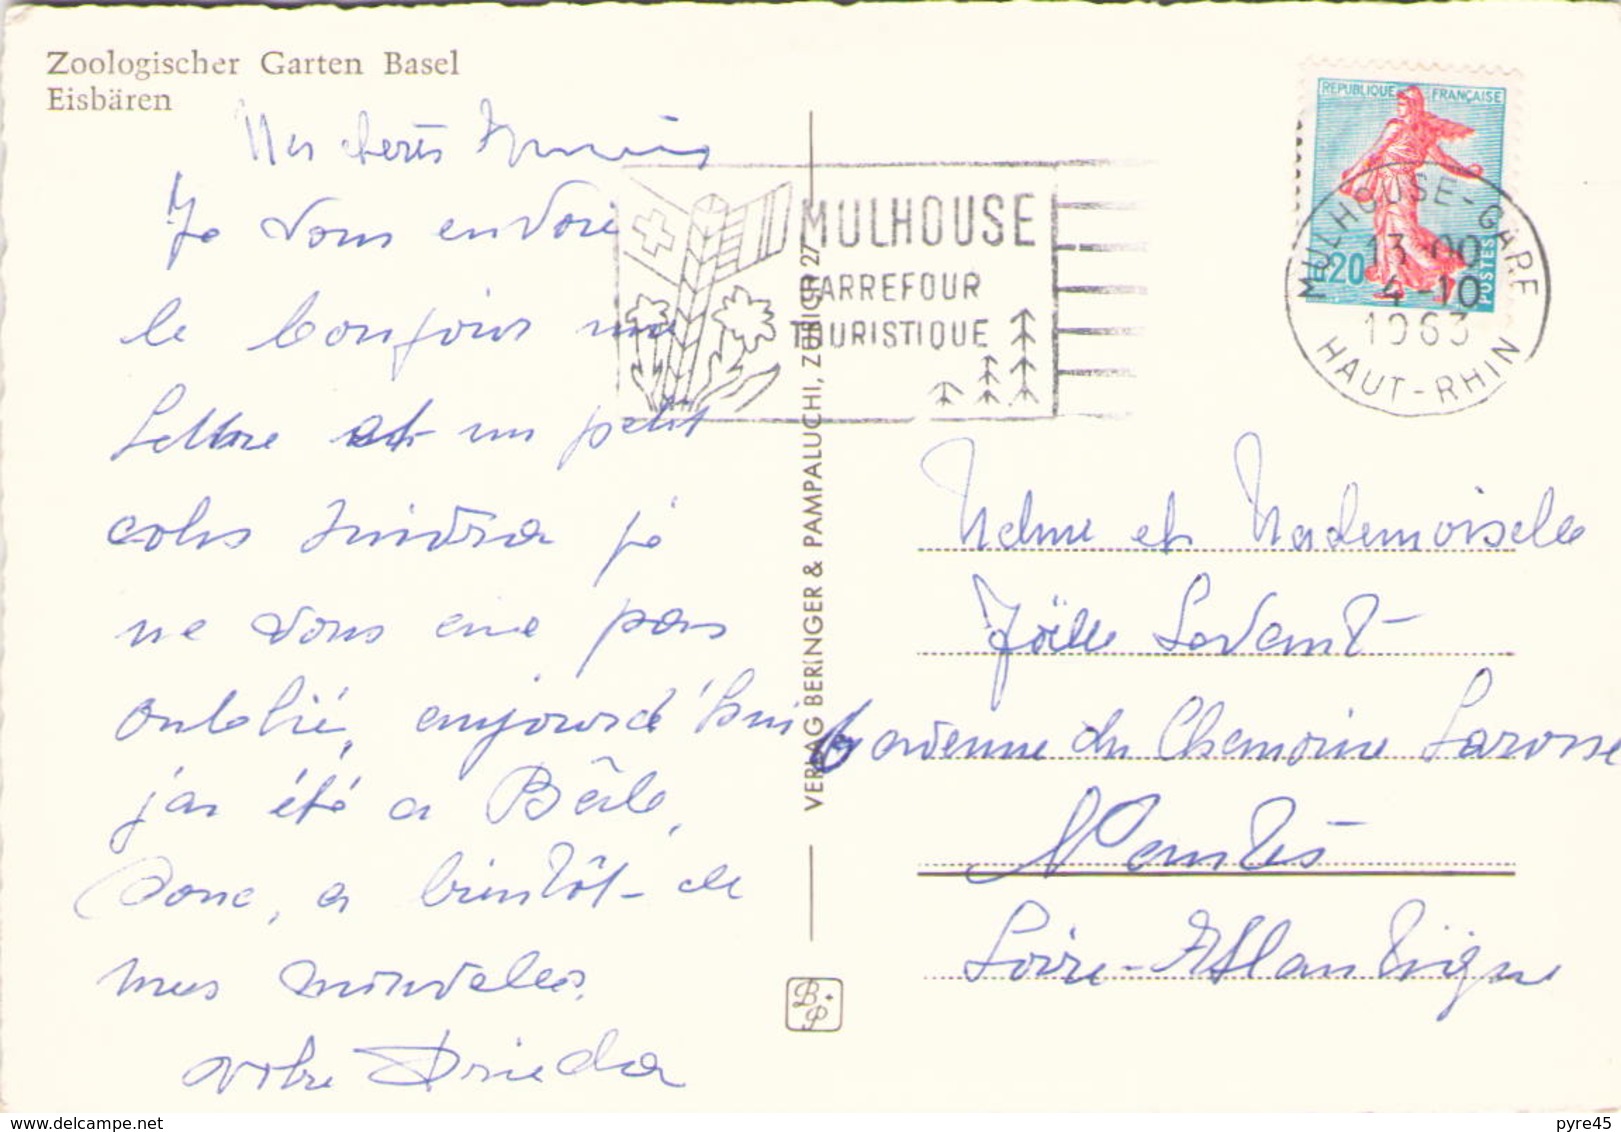 Zoologischer Garten Basel
Eisbären
Mes chers Amis
Je vous envoie
le bonjour une
Lettre et un petit
colis suivra je
ne vous ai pas
oublié, aujourd'hui
j'ai été a Bâle,
Donc, a bientôt de
mes nouvelles.
votre Frieda
VERLAG BERINGER & PAMPALUCHI, ZÜRICH 27
B+P
MULHOUSE
CARREFOUR
TOURISTIQUE
REPUBLIQUE FRANÇAISE
0,20
POSTES
MULHOUSE-GARE
13-00
4-10
1963
HAUT-RHIN
Mdme et Mademoiselle
Joëlle Levant
6 avenue du Chanoine Larose
Nantes
Loire-Atlantique
pyre45